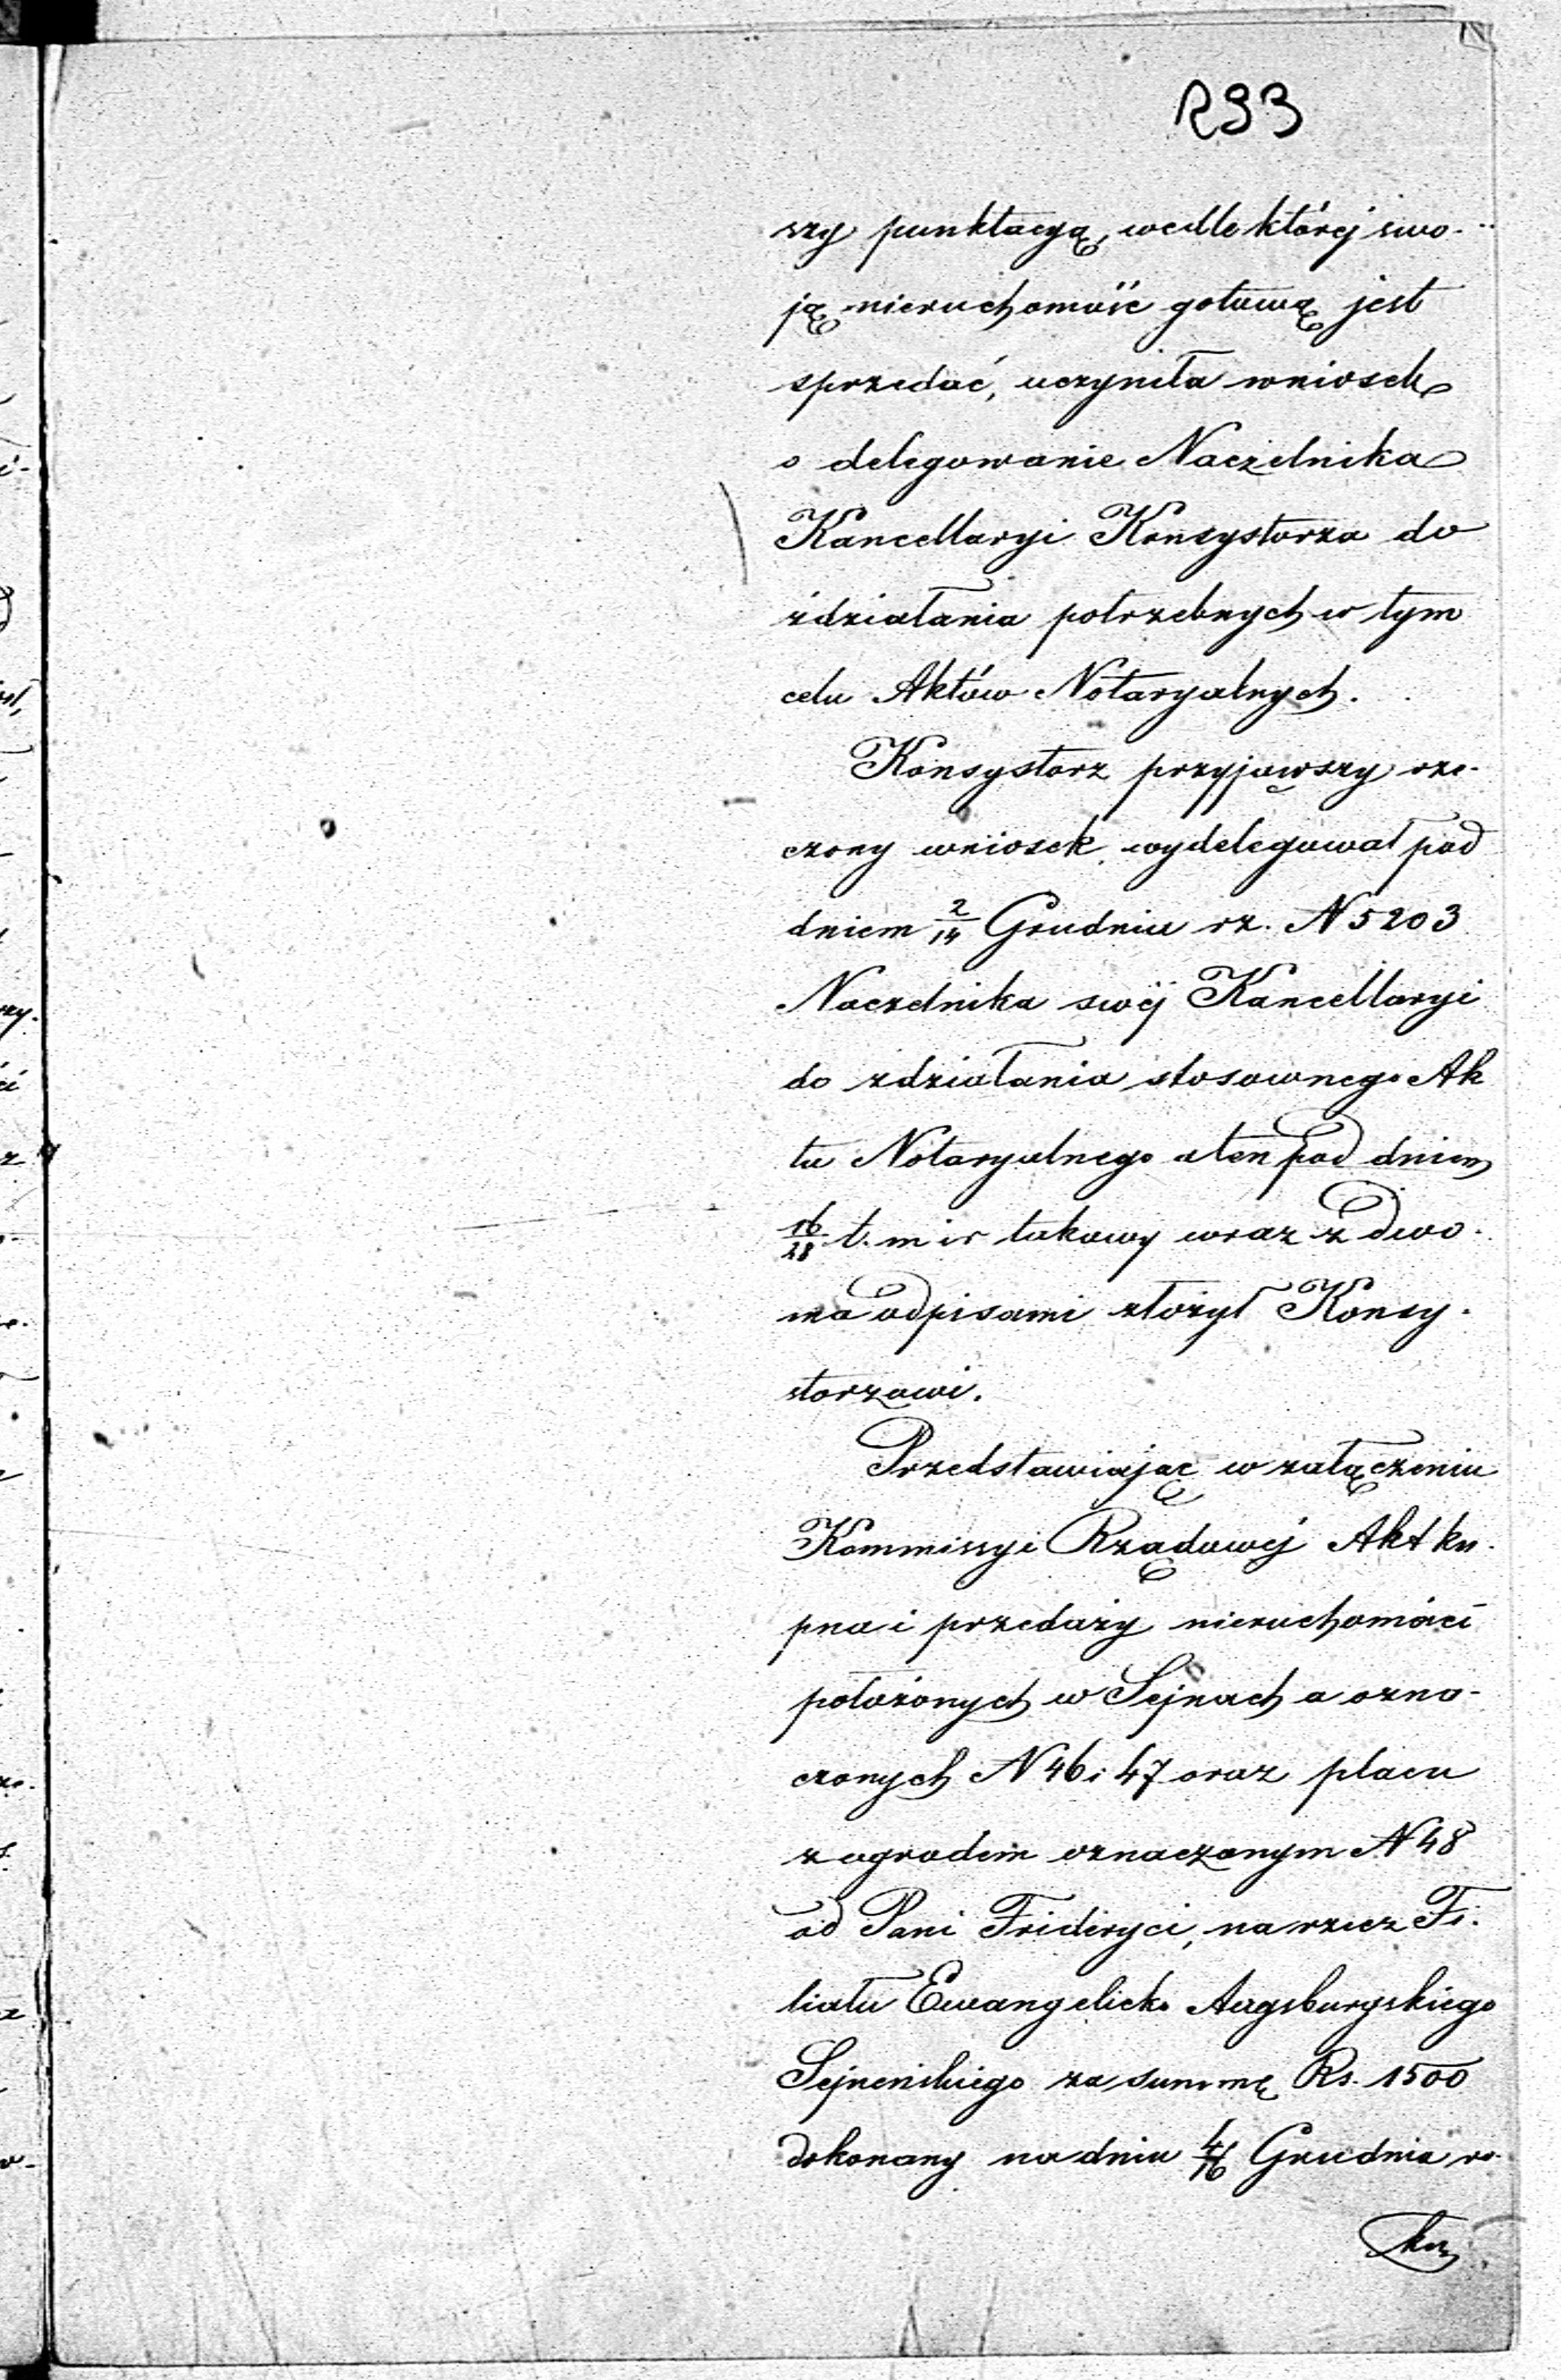 293
szy punktacyą, wedle której swo-
ją nieruchomość gotową jest
sprzedać, uczyniła wniosek
o delegowanie Naczelnika
Kancellaryi Konsystorza do
zdziałania potrzebnych w tym
celu Aktów Notaryalnych.
Konsystorz przyjąwszy rze-
czony wniosek, wydelegował pod
dniem 2/14 Grudnia rz. N 5203
Naczelnika swéj Kancellaryi
do zdziałania stosownego Ak
tu Notaryalnego a ten pod dniem
16/28 t. m i r takowy wraz z dwo-
ma odpisami złożył Konsy-
storzowi.
Przedstawiając w załączeniu
Kommissyi Rządowéj Akt ku-
pna i przedaży nieruchomości
położonych w Sejnach a ozna-
czonych N 46 i 47 oraz placu
z ogrodem oznaczonym N 48
od Pani Frideryci, na rzecz Fi-
liału Ewangelicko Augsburgskiego
Sejneńskiego za summę Rs. 1500
dokonany na dniu 4/16 Grudnia ro-
ku